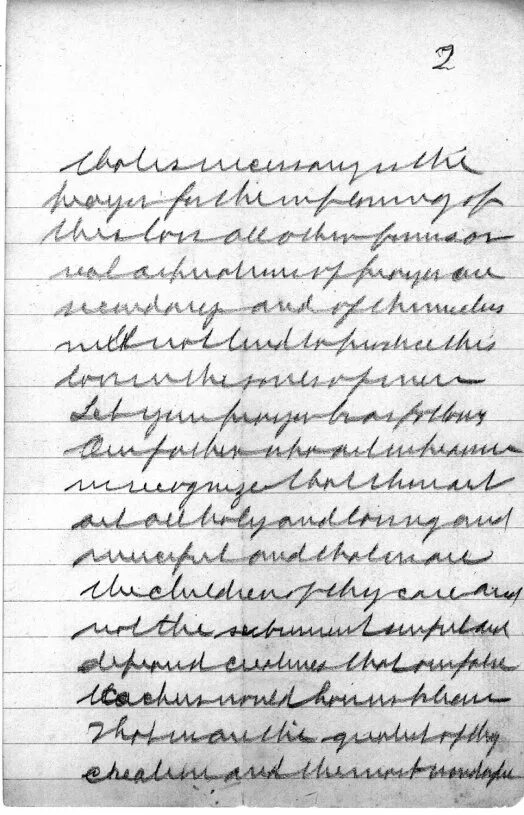 2
that is necessary is the
prayer for the inflowing of
this love all other forms or
real aspirations of prayer are
secondary and of themselves
will not tend to produce this
love in the souls of men
Let your prayer be as follows
Our father who art in heaven
we recognize that thou art
art all holy and loving and
merciful and that we are
the children of thy care and
not the subservient sinful and
depraved creatures that our false
teachers would have us believe
That we are the greatest of thy
creation and the most wonderful